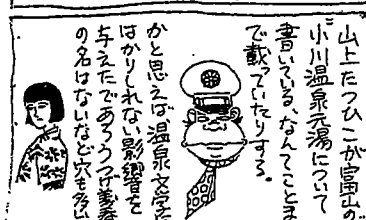 山上たつひこが富山の
"小川温泉元湯について
書いている、なんてことま
で載っていたりする。
かと思えば温泉文学に
はかりしれない影響を
与えたであろうつげ義春
の名はないなど穴も多い